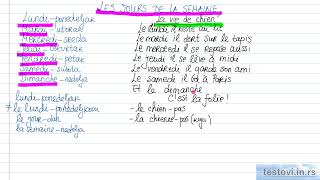 LES JOURS DE LA SEMAINE
La vie de chien
Lundi - ponedeljak
Mardi - utorak
Le mardi il dort sur le tapis
Mercredi - sreda
Le mercredi il se repose aussi
Jeudi - četvrtak
Le jeudi il se lève à midi
Vendredi - petak
Le vendredi il garde son ami
Samedi - subota
Le samedi il va à Paris
Dimanche - nedelja
Et le dimanche
C'est la folie!
lundi - ponedeljak
le lundi - ponedeljkom
- le chien - pas
le jour - dan
- la chienne - pas
la semaine - nedelja
testovi.in.rs